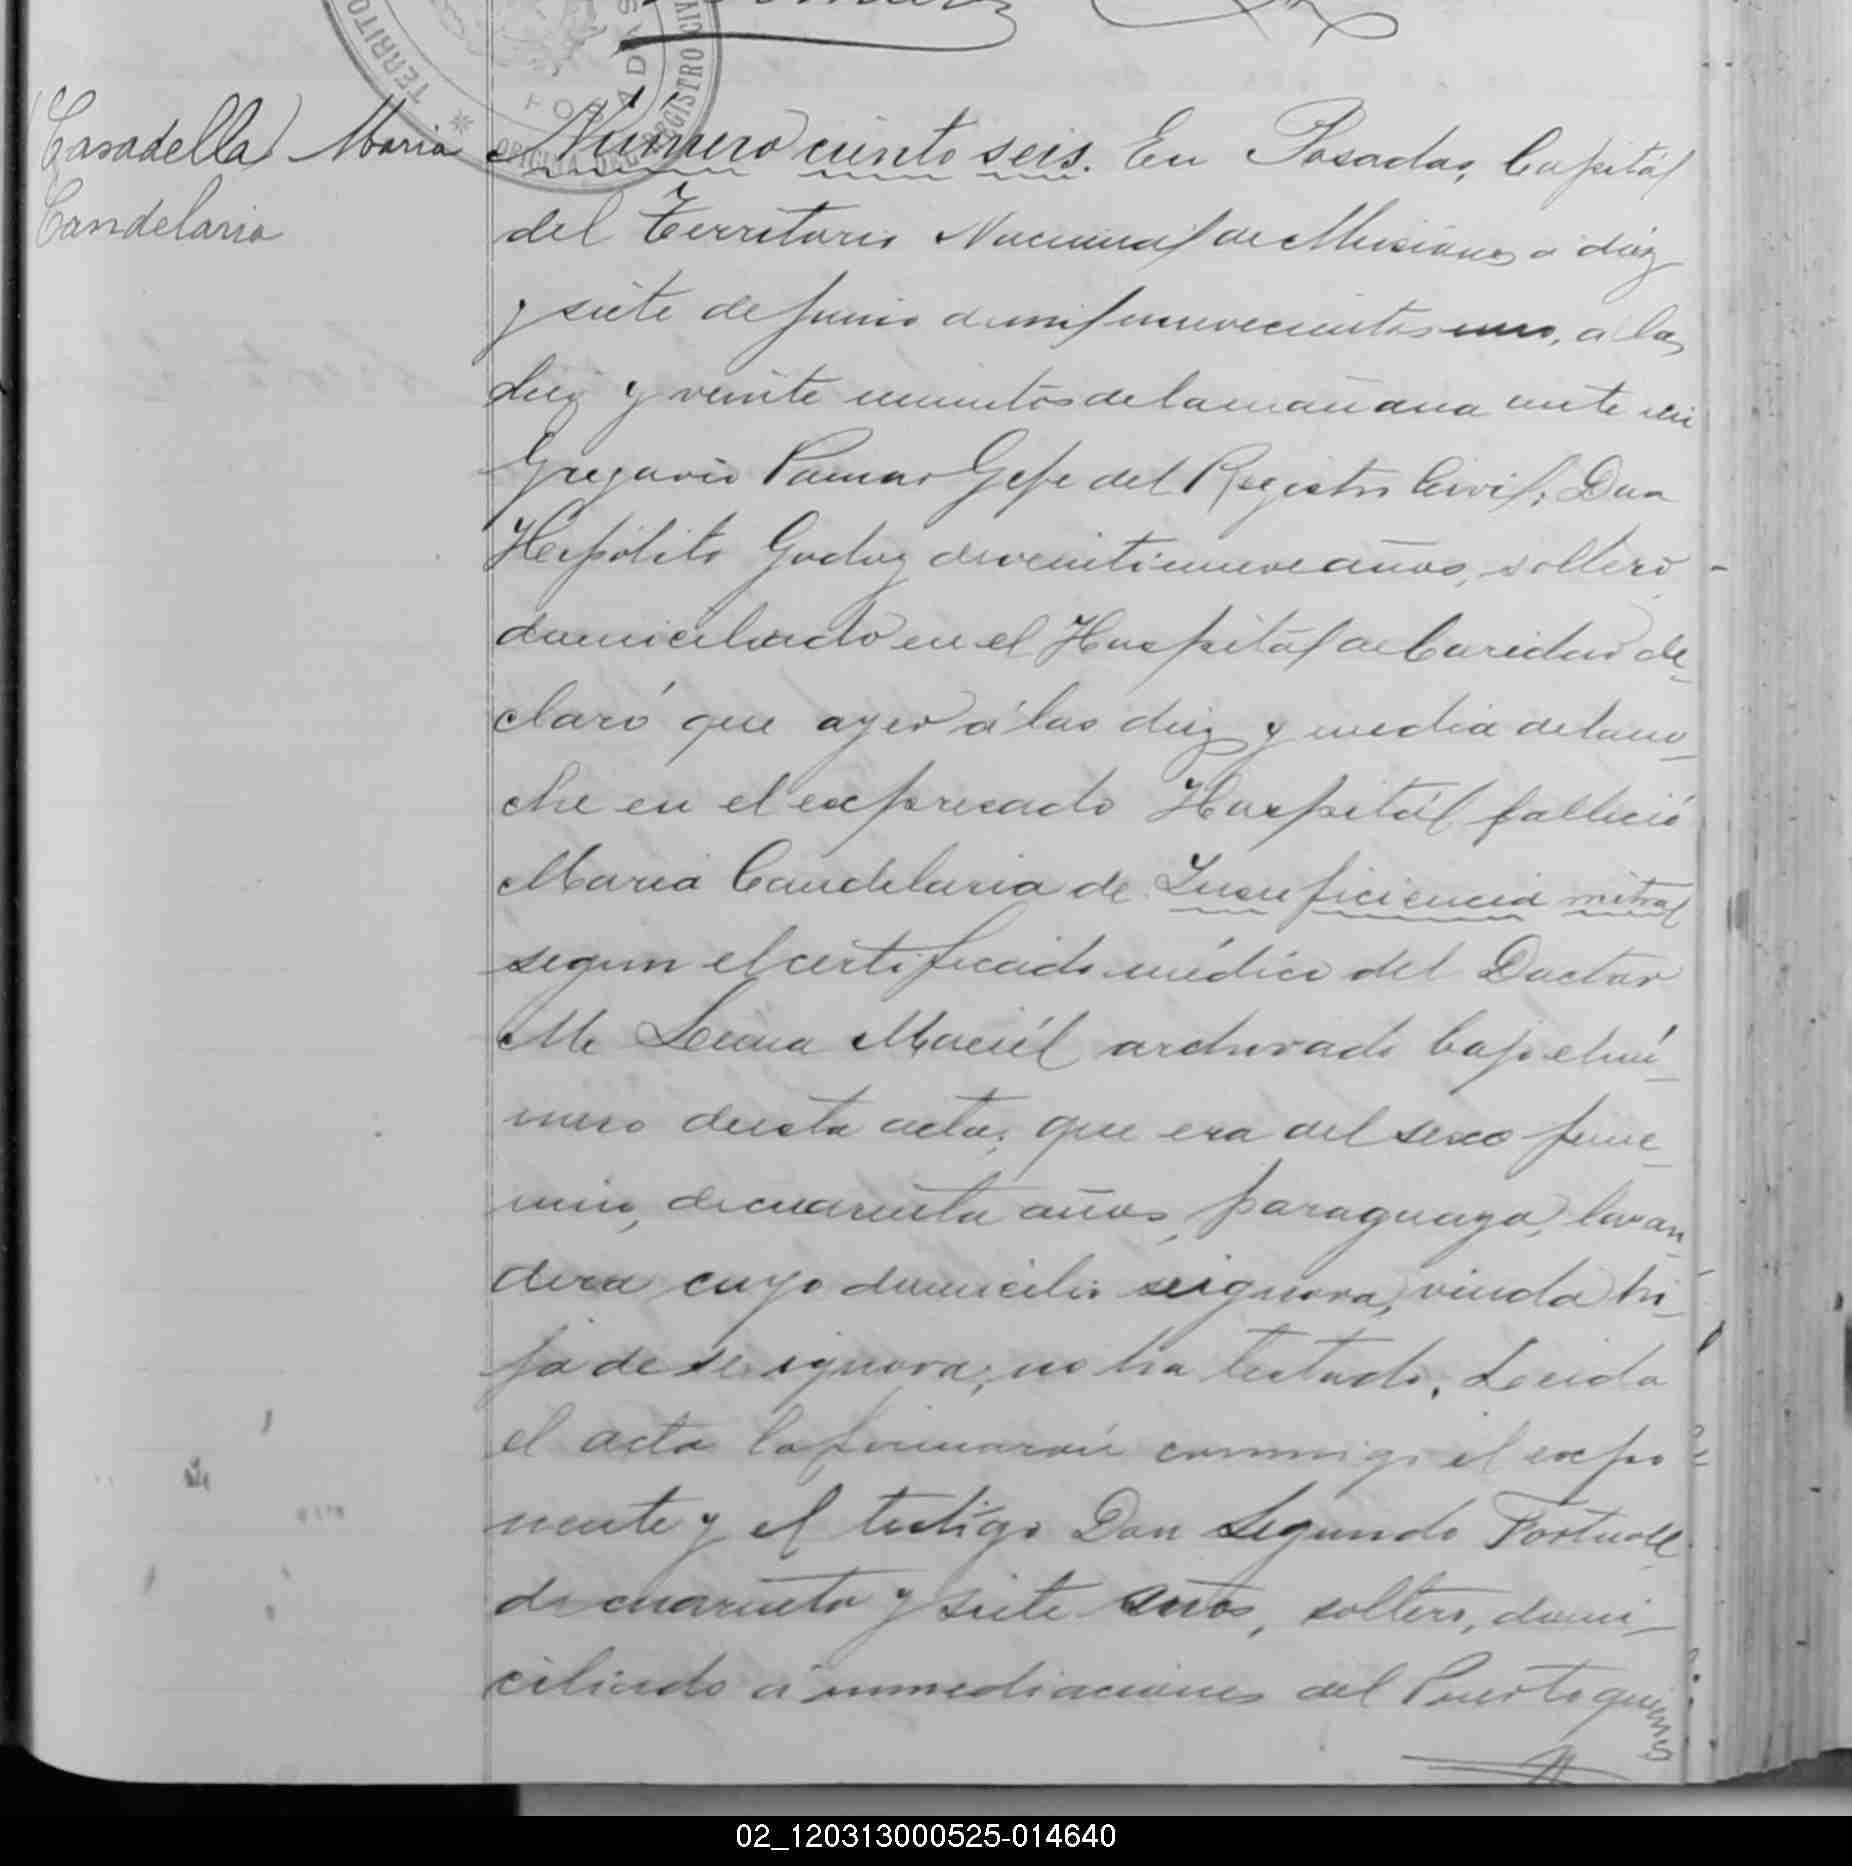 TERRITO
REGISTRO CIV
OFICINA DEL
POSADAS
Casadella Maria
Candelaria
Número ciento seis. En Posadas, Capitál
del Territorio Nacional de Misiones a diéz
y siete de junio de mil novecientos uno, a las
diez y veinte minutos de la mañana ante mi
Gregorio Pamar Gefe del Registro Civil; Don
Hipólito Godoy de veintinueve años, soltero
domiciliado en el Hospitál de Caridad de-
claró que ayer á las diez y media de la no-
che en el expresado Hospitál falleció
Maria Candelaria de Insuficiencia mitral
segun el certificado médico del Doctor
M. Lecuna Maciél archivado bajo el nú-
mero de esta acta; que era del sexo feme-
nino, de cuarenta años, paraguaya, lavan-
dera cuyo domicilio se ignora, viuda hi-
ja de se ignora; no ha testado. Leida
el acta la firmaron conmigo el expo
nente y el testigo Don Segundo
de cuarenta y siete años, soltero, domi-
ciliado á inmediaciones del Puerto quienes
02_120313000525-014640